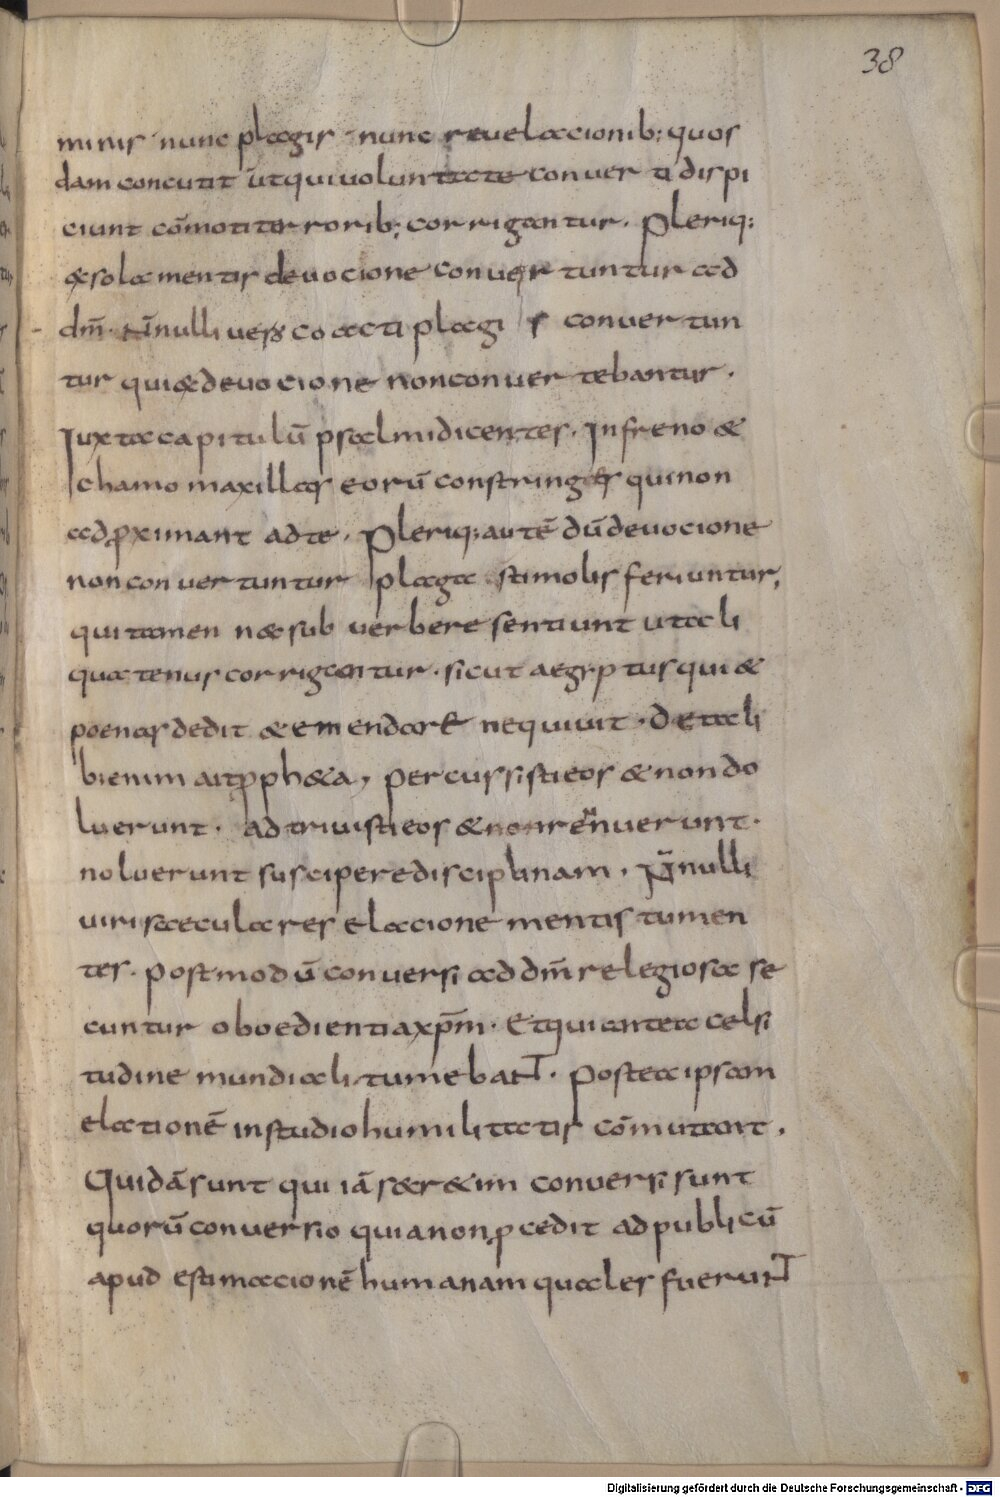 38
minis nunc plagis nunc revelacionib; quos
dam concutit ut qui voluntate converti dispi
ciunt cōmoti terrorib; corrigantur. Pleriq;
& sola mentis devocione convertuntur ad
dm̄. Nnulli vero coacti plagis convertun
tur qui & devocione non convertebantur.
Iuxta capitulū psalmi dicentes. In freno &
chamo maxillas eorū constringes qui non
adproximant ad te. Pleriq; autē dū devocione
non convertuntur plaga stimolis feriuntur,
qui tamen n& sub verbere sentiunt ut ali
quatenus corrigantur. sicut aegyptus qui &
poenas dedit & emendare nequivit. De tali
bi enim ait proph&a, percussisti eos & non do
luerunt. adtrivisti eos & non renuerunt.
noluerunt suscipere disciplinam. Nnulli
viri saeculares elacione mentis tumen
tes. postmodū conversi ad dm̄ relegiosa se
cuntur oboedientia xp̄m. Et qui antea celsi
tudine mundiali tumebant. postea ipsam
elationē in studio humilitatis cōmutant.
Quidā sunt qui iā saer&im conversi sunt
quorū conversio quia non pcedit ad publicū
apud estimacionē humanam quales fuerunt
Digitalisierung gefördert durch die Deutsche Forschungsgemeinschaft - DFG